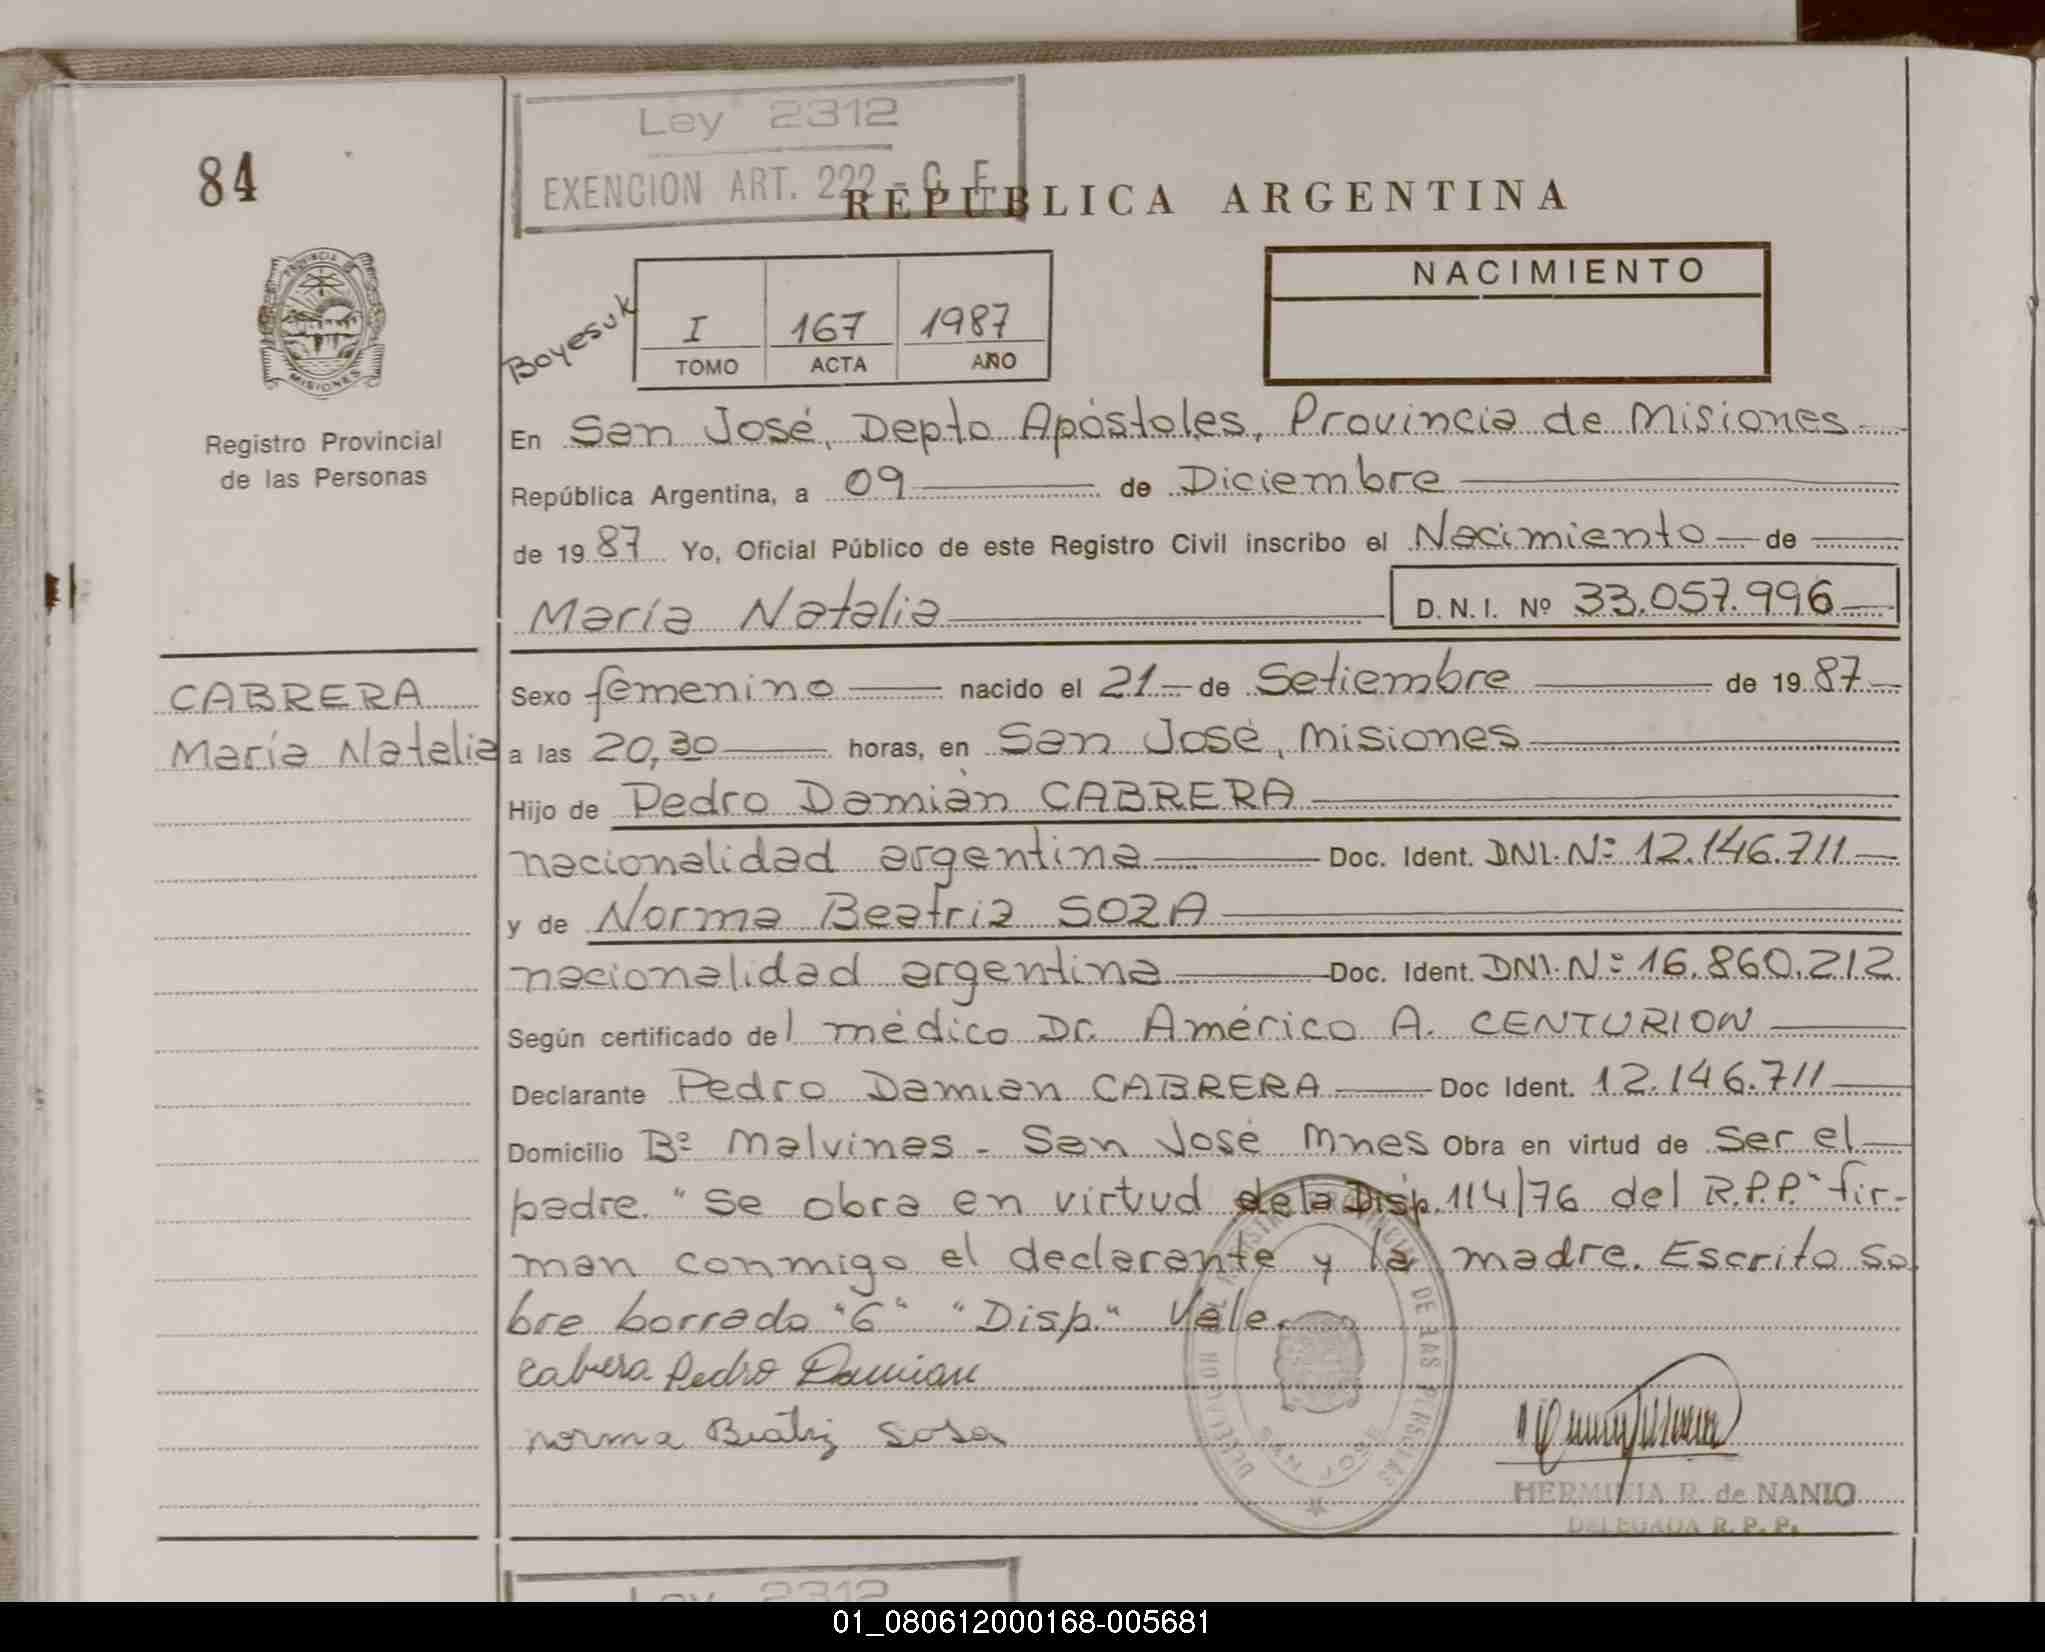 84
Ley 2312
EXENCION ART. 222 - C. F.
REPUBLICA ARGENTINA
PROVINCIA DE
MISIONES
Registro Provincial
de las Personas
Boyesuk
I 167 1987
TOMO ACTA AÑO
NACIMIENTO
En San José, Depto Apóstoles, Provincia de Misiones
República Argentina, a 09 de Diciembre
de 19 87 Yo, Oficial Público de este Registro Civil inscribo el Nacimiento de
María Natalia D.N.I. Nº 33.057.996
CABRERA
María Natalia
Sexo femenino nacido el 21 de Setiembre de 19 87
a las 20,30 horas, en San José, Misiones
Hijo de Pedro Damián CABRERA
nacionalidad argentina Doc. Ident. DNI. Nº 12.146.711
y de Norma Beatriz SOZA
nacionalidad argentina Doc. Ident. DNI. Nº 16.860.212
Según certificado del médico Dr. Américo A. CENTURION
Declarante Pedro Damian CABRERA Doc Ident. 12.146.711
Domicilio Bº Malvinas - San José Mnes Obra en virtud de ser el
padre. "Se obra en virtud de la Disp. 114/76 del R.P.P." fir-
man conmigo el declarante y la madre. Escrito so
bre borrado "6" "Disp." Vale.
Cabrera Pedro Damian
norma Beatriz Sosa
DELEGACION DEL REGISTRO PROVINCIAL DE LAS PERSONAS
SAN JOSE
HERMINIA R. de NANIO
DELEGADA R. P. P.
Ley 2312
01_080612000168-005681